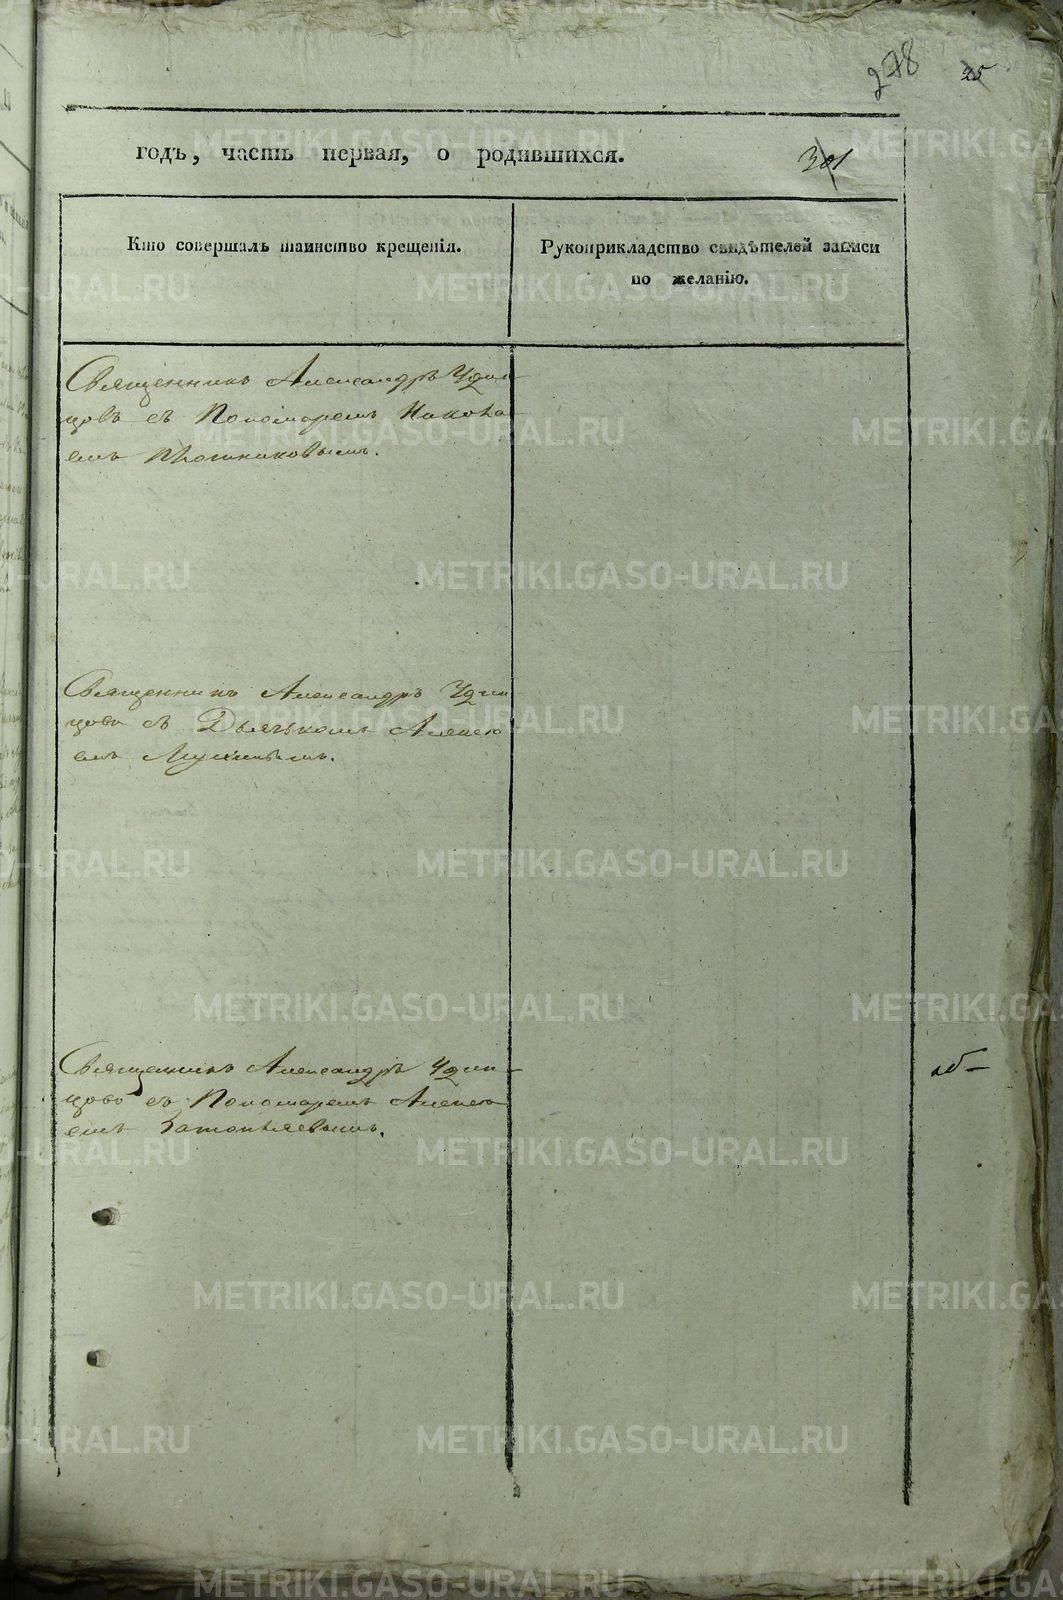 278
25
301
годъ, часть первая, о родившихся.
Кто совершалъ таинство крещенія.
Рукоприкладство свидѣтелей записи
по желанію.
Священникъ Александръ Удин
цовъ съ Пономаремъ Никола
емъ Плотниковымъ.
Священникъ Александръ Удин
цовъ съ Дьячькомъ Алексѣ
емъ
Священникъ Александръ Удин
цовъ съ Пономаремъ Алексѣ
емъ Затопляевымъ.
METRIKI.GASO-URAL.RU